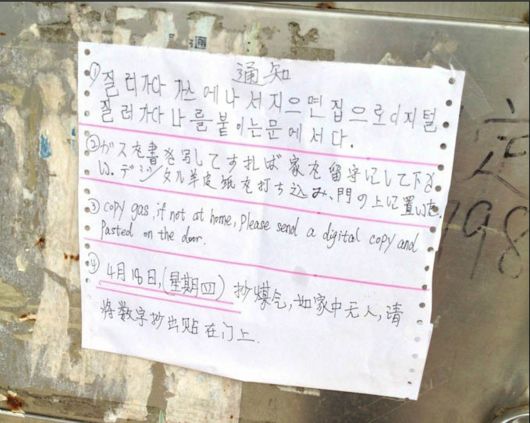 通知
① 질러가다 가스에나서지으면집으로디지털
질러가다나를붙이는문에서다.
② ガスを書き写してすれば家を留守にして下さ
い.デジタル羊皮紙を打ち込み、門の上に置いた.
③ copy gas, if not at home, please send a digital copy and
Pasted on the door.
④ 4月18日,(星期四)抄煤气,如家中无人,请
将数字抄出贴在门上.
定
98